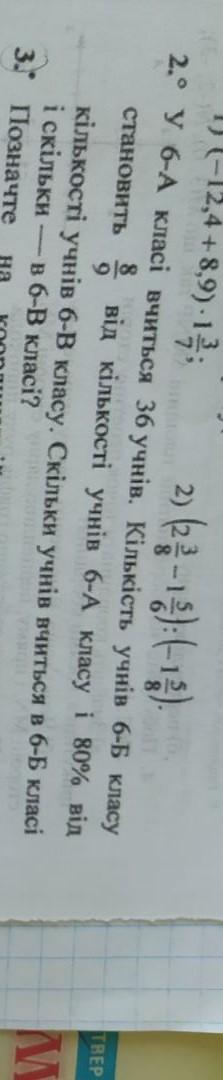 1) (−12,4 + 8,9) · 1 3/7;
2) (2 3/8 − 1 5/6) : (−1 5/8).
2.° У 6-А класі вчиться 36 учнів. Кількість учнів 6-Б класу
становить 8/9 від кількості учнів 6-А класу і 80% від
кількості учнів 6-В класу. Скільки учнів вчиться в 6-Б класі
і скільки — в 6-В класі?
3.• Позначте на
ТВЕР